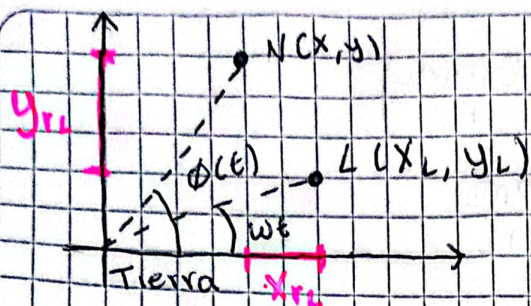 N(x,y)
yrL
ϕ(t)
L(XL, YL)
wt
Tierra
XrL